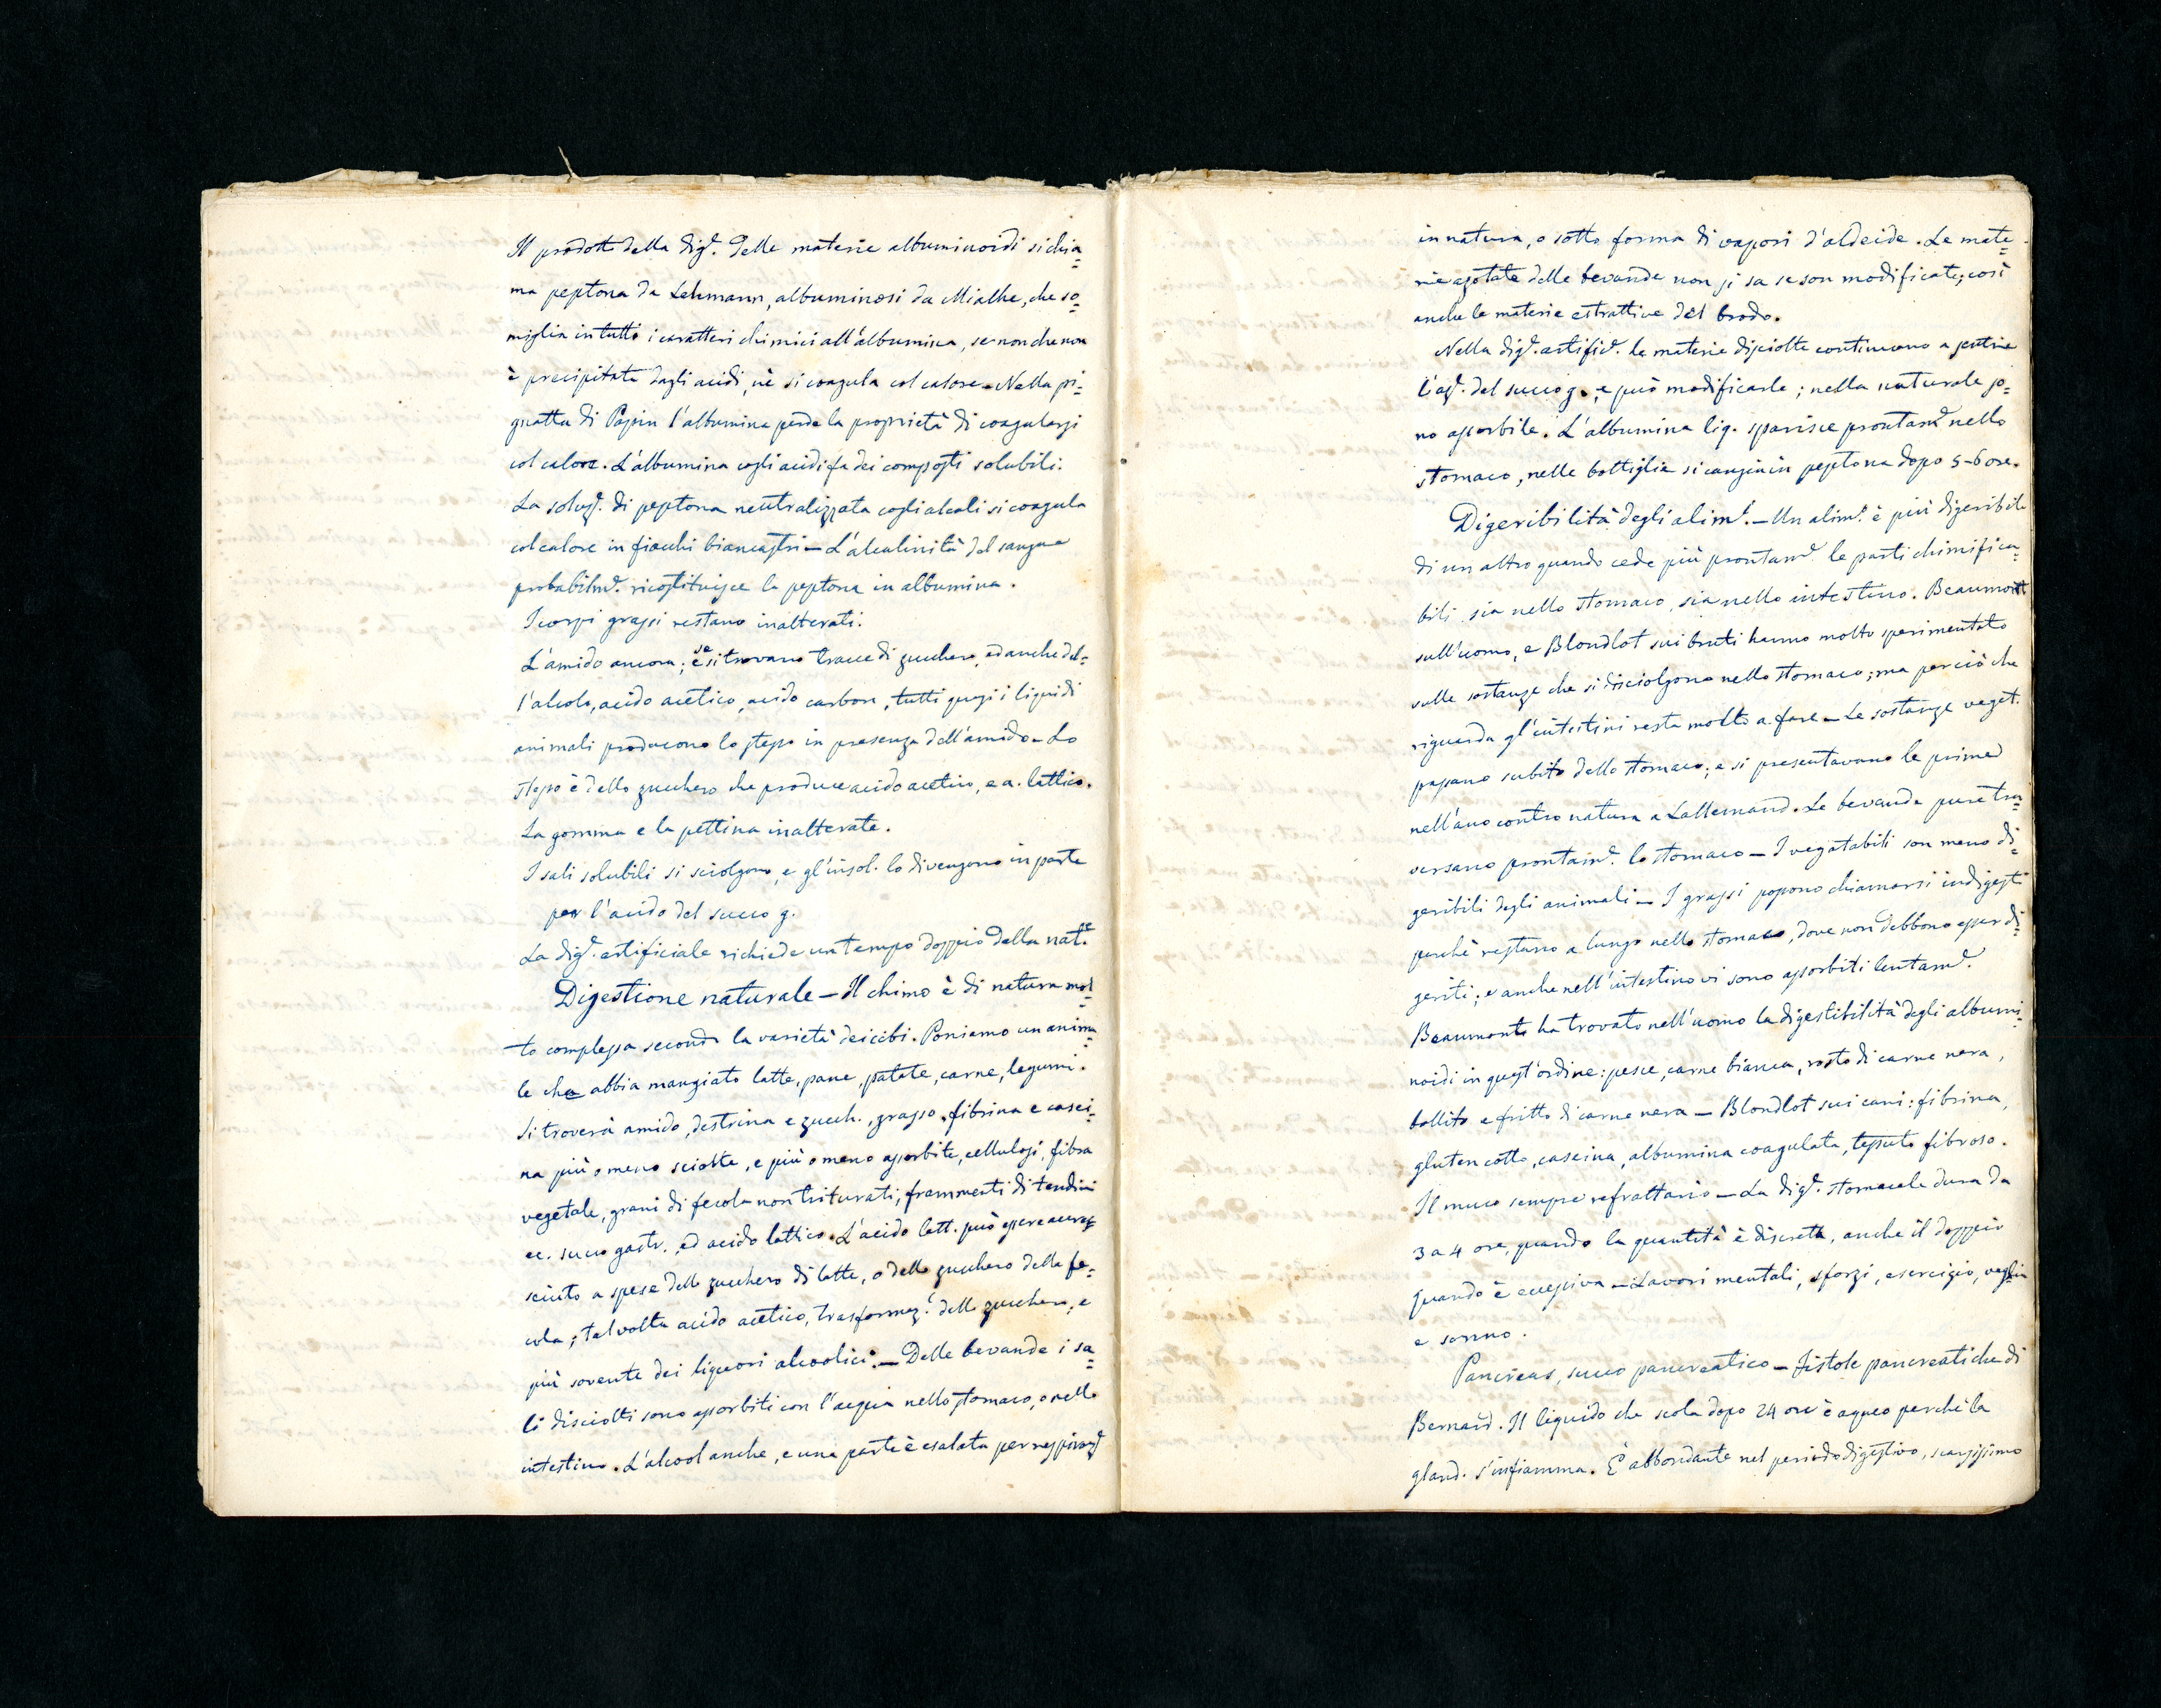 Il prodotto della dig.e delle materie albuminoidi si chia=
ma peptona da Lehmann, albuminosi da Mialhe, che so=
miglia in tutto i caratteri chimici all'albumina, se non che non
è precipitata dagli acidi, nè si coagula col calore. Nella pi=
gnatta di Papin l'albumina perde la proprietà di coagularsi
col calore. L'albumina cogli acidi fa dei composti solubili.
La soluz.e di peptona neutralizzata cogli alcali si coagula
col calore in fiocchi biancastri — L'alcalinità del sangue
probabilm.e ricostituisce la peptona in albumina.
I corpi grassi restano inalterati.
L'amido ancora; e se si trovano tracce di zucchero, ed anche del=
l'alcole, acido acetico, acido carbon, tutti quasi i liquidi
animali producono lo stesso in presenza dell'amido — Lo
stesso è dello zucchero che produce acido acetico, e a. lattico.
La gomma e la pettina inalterate.
I sali solubili si sciolgono, e gl'insol. lo divengono in parte
per l'acido del succo g.
La dig.e artificiale richiede un tempo doppio della nat.e
Digestione naturale — Il chimo è di natura mol=
to complessa secondo la varietà dei cibi. Poniamo un anima=
le che abbia mangiato latte, pane, patate, carne, legumi.
Si troverà amido, destrina e zucch., grasso, fibrina e casei=
na più o meno sciolte, e più o meno assorbite, cellulosi, fibra
vegetale, grani di fecola non triturati, frammenti di tendini
ec. succo gastr., ed acido lattico. L'acido latt. può essere accre=
sciuto a spese dello zucchero di latte, o dello zucchero della fe=
cola; talvolta acido acetico, trasformaz.e dello zucchero, e
più sovente dei liquori alcoolici. — Delle bevande i sa=
li disciolti sono assorbiti con l'acqua nello stomaco, o nello
intestino. L'alcool anche, e una parte è esalata per respiraz.e
in natura, o sotto forma di vapori d'aldeide. Le mate=
rie azotate delle bevande non si sa se son modificate; così
anche le materie estrattive del brodo.
Nella dig.e artific.e le materie disciolte continuano a sentire
l'az.e del succo g., e può modificarle; nella naturale so=
no assorbite. L'albumina liq. sparisce prontam.e nello
stomaco, nelle bottiglie si cangia in peptona dopo 5-6 ore.
Digeribilità degli alim.i — Un alim.o è più digeribile
di un altro quando cede più prontam.e le parti chimifica=
bili sia nello stomaco, sia nello intestino. Beaumont
sull'uomo, e Blondlot sui bruti hanno molto sperimentato
sulle sostanze che si disciolgono nello stomaco; ma perciò che
riguarda gl'intestini resta molto a fare — Le sostanze veget.
passano subito dallo stomaco; e si presentavano le prime
nell'ano contro natura a Lallemand. Le bevande pure tra=
versano prontam.e lo stomaco — I vegetabili son meno di=
geribili degli animali — I grassi possono chiamarsi indigesti
perchè restano a lungo nello stomaco, dove non debbono esser di=
geriti; e anche nell'intestino vi sono assorbiti lentam.e
Beaumont ha trovato nell'uomo la digestibilità degli albumi=
noidi in quest'ordine: pesce, carne bianca, rosto di carne nera,
bollito e fritto di carne nera — Blondlot sui cani: fibrina,
gluten cotto, caseina, albumina coagulata, tessuto fibroso.
Il muco sempre refrattario — La dig.e stomacale dura da
3 a 4 ore, quando la quantità è discreta, anche il doppio
quando è eccessiva — Lavori mentali, sforzi, esercizio, veglia
e sonno.
Pancreas, succo pancreatico — Fistole pancreatiche di
Bernard. Il liquido che scola dopo 24 ore è acqueo perchè la
gland. s'infiamma. È abbondante nel periodo digestivo, scarsissimo